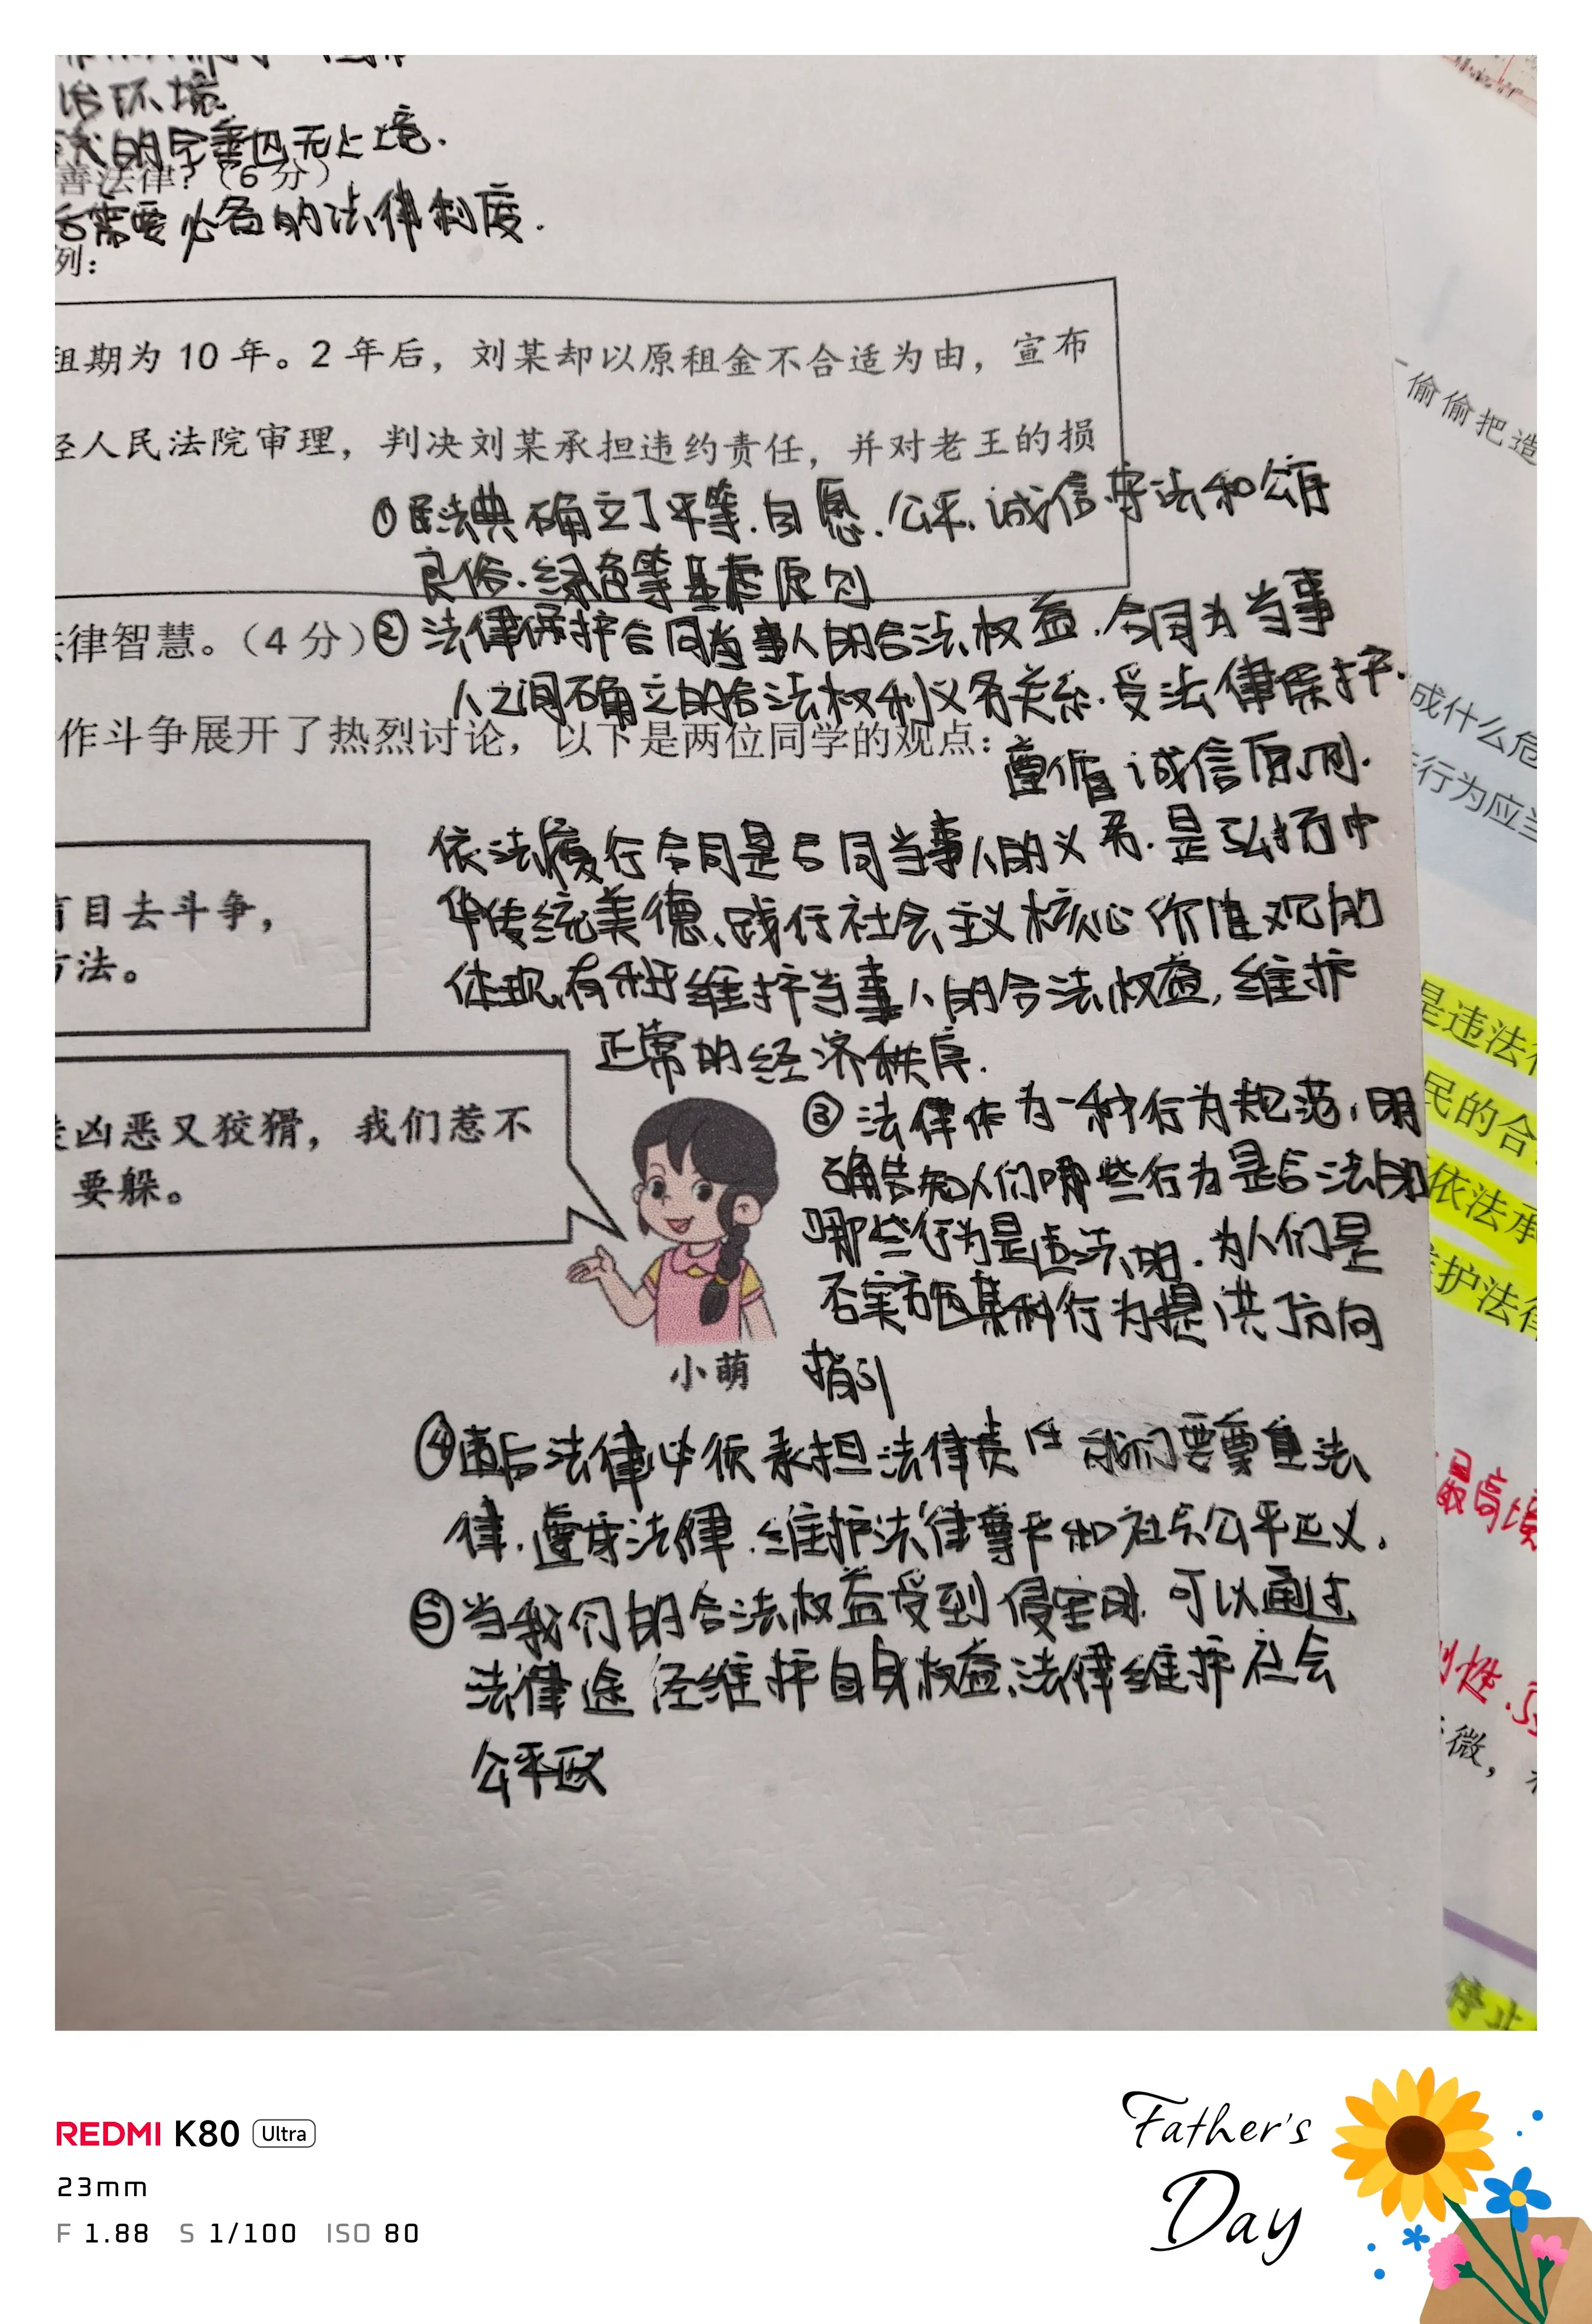 治环境.
的完善也无止境.
善法律？（6分）
需要必备的法律制度.
列：
租期为 10 年。2 年后，刘某却以原租金不合适为由，宣布
经人民法院审理，判决刘某承担违约责任，并对老王的损
①民法典确立了平等.自愿.公平.诚信守法和公序
良俗.绿色等基本原则
法律智慧。（4 分）
②法律保护合同当事人的合法权益.合同为当事
人之间确立的合法权利义务关系.受法律保护.
作斗争展开了热烈讨论，以下是两位同学的观点：
遵循诚信原则.
依法履行合同是合同当事人的义务.是弘扬中
华传统美德、践行社会主义核心价值观的
体现,有利于维护当事人的合法权益,维护
正常的经济秩序.
盲目去斗争，
方法。
凶恶又狡猾，我们惹不
要躲。
小萌
③法律作为一种行为规范,明
确告知人们哪些行为是合法的
哪些行为是违法的.为人们是
否实施某种行为提供了方向
指引
④违反法律必须承担法律责任 我们要尊重法
律.遵守法律.维护法律尊严和社会公平正义.
⑤当我们的合法权益受到侵害时.可以通过
法律途径维护自身权益、法律维护社会
公平正义
偷偷把造
成什么危
行为应当
是违法行
民的合
依法承
护法律
最高境
性.
微，
停止
REDMI K80 Ultra
23mm
F 1.88 S 1/100 ISO 80
Father's
Day